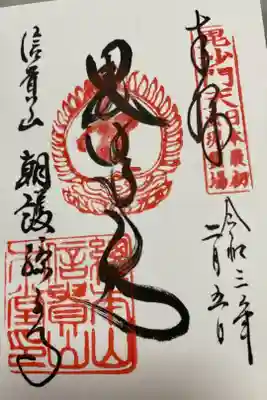 奉拝
毘沙門天王
日本最初
霊場
令和三年
二月五日
毘沙門天
信貴山 朝護孫子寺